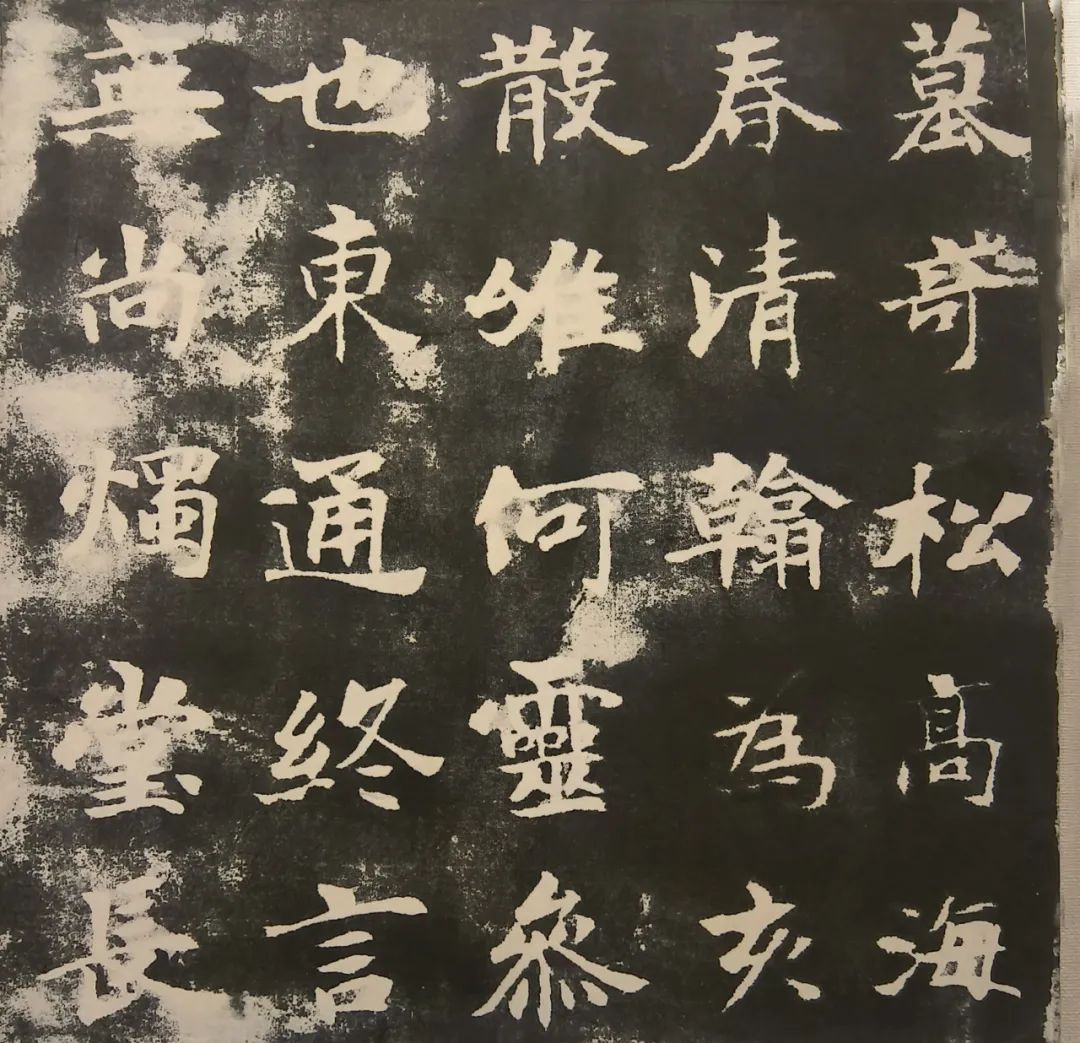 墓奇松高海
春清翰為亥
散堆何靈叅
也東通終言
無尚燭堂長